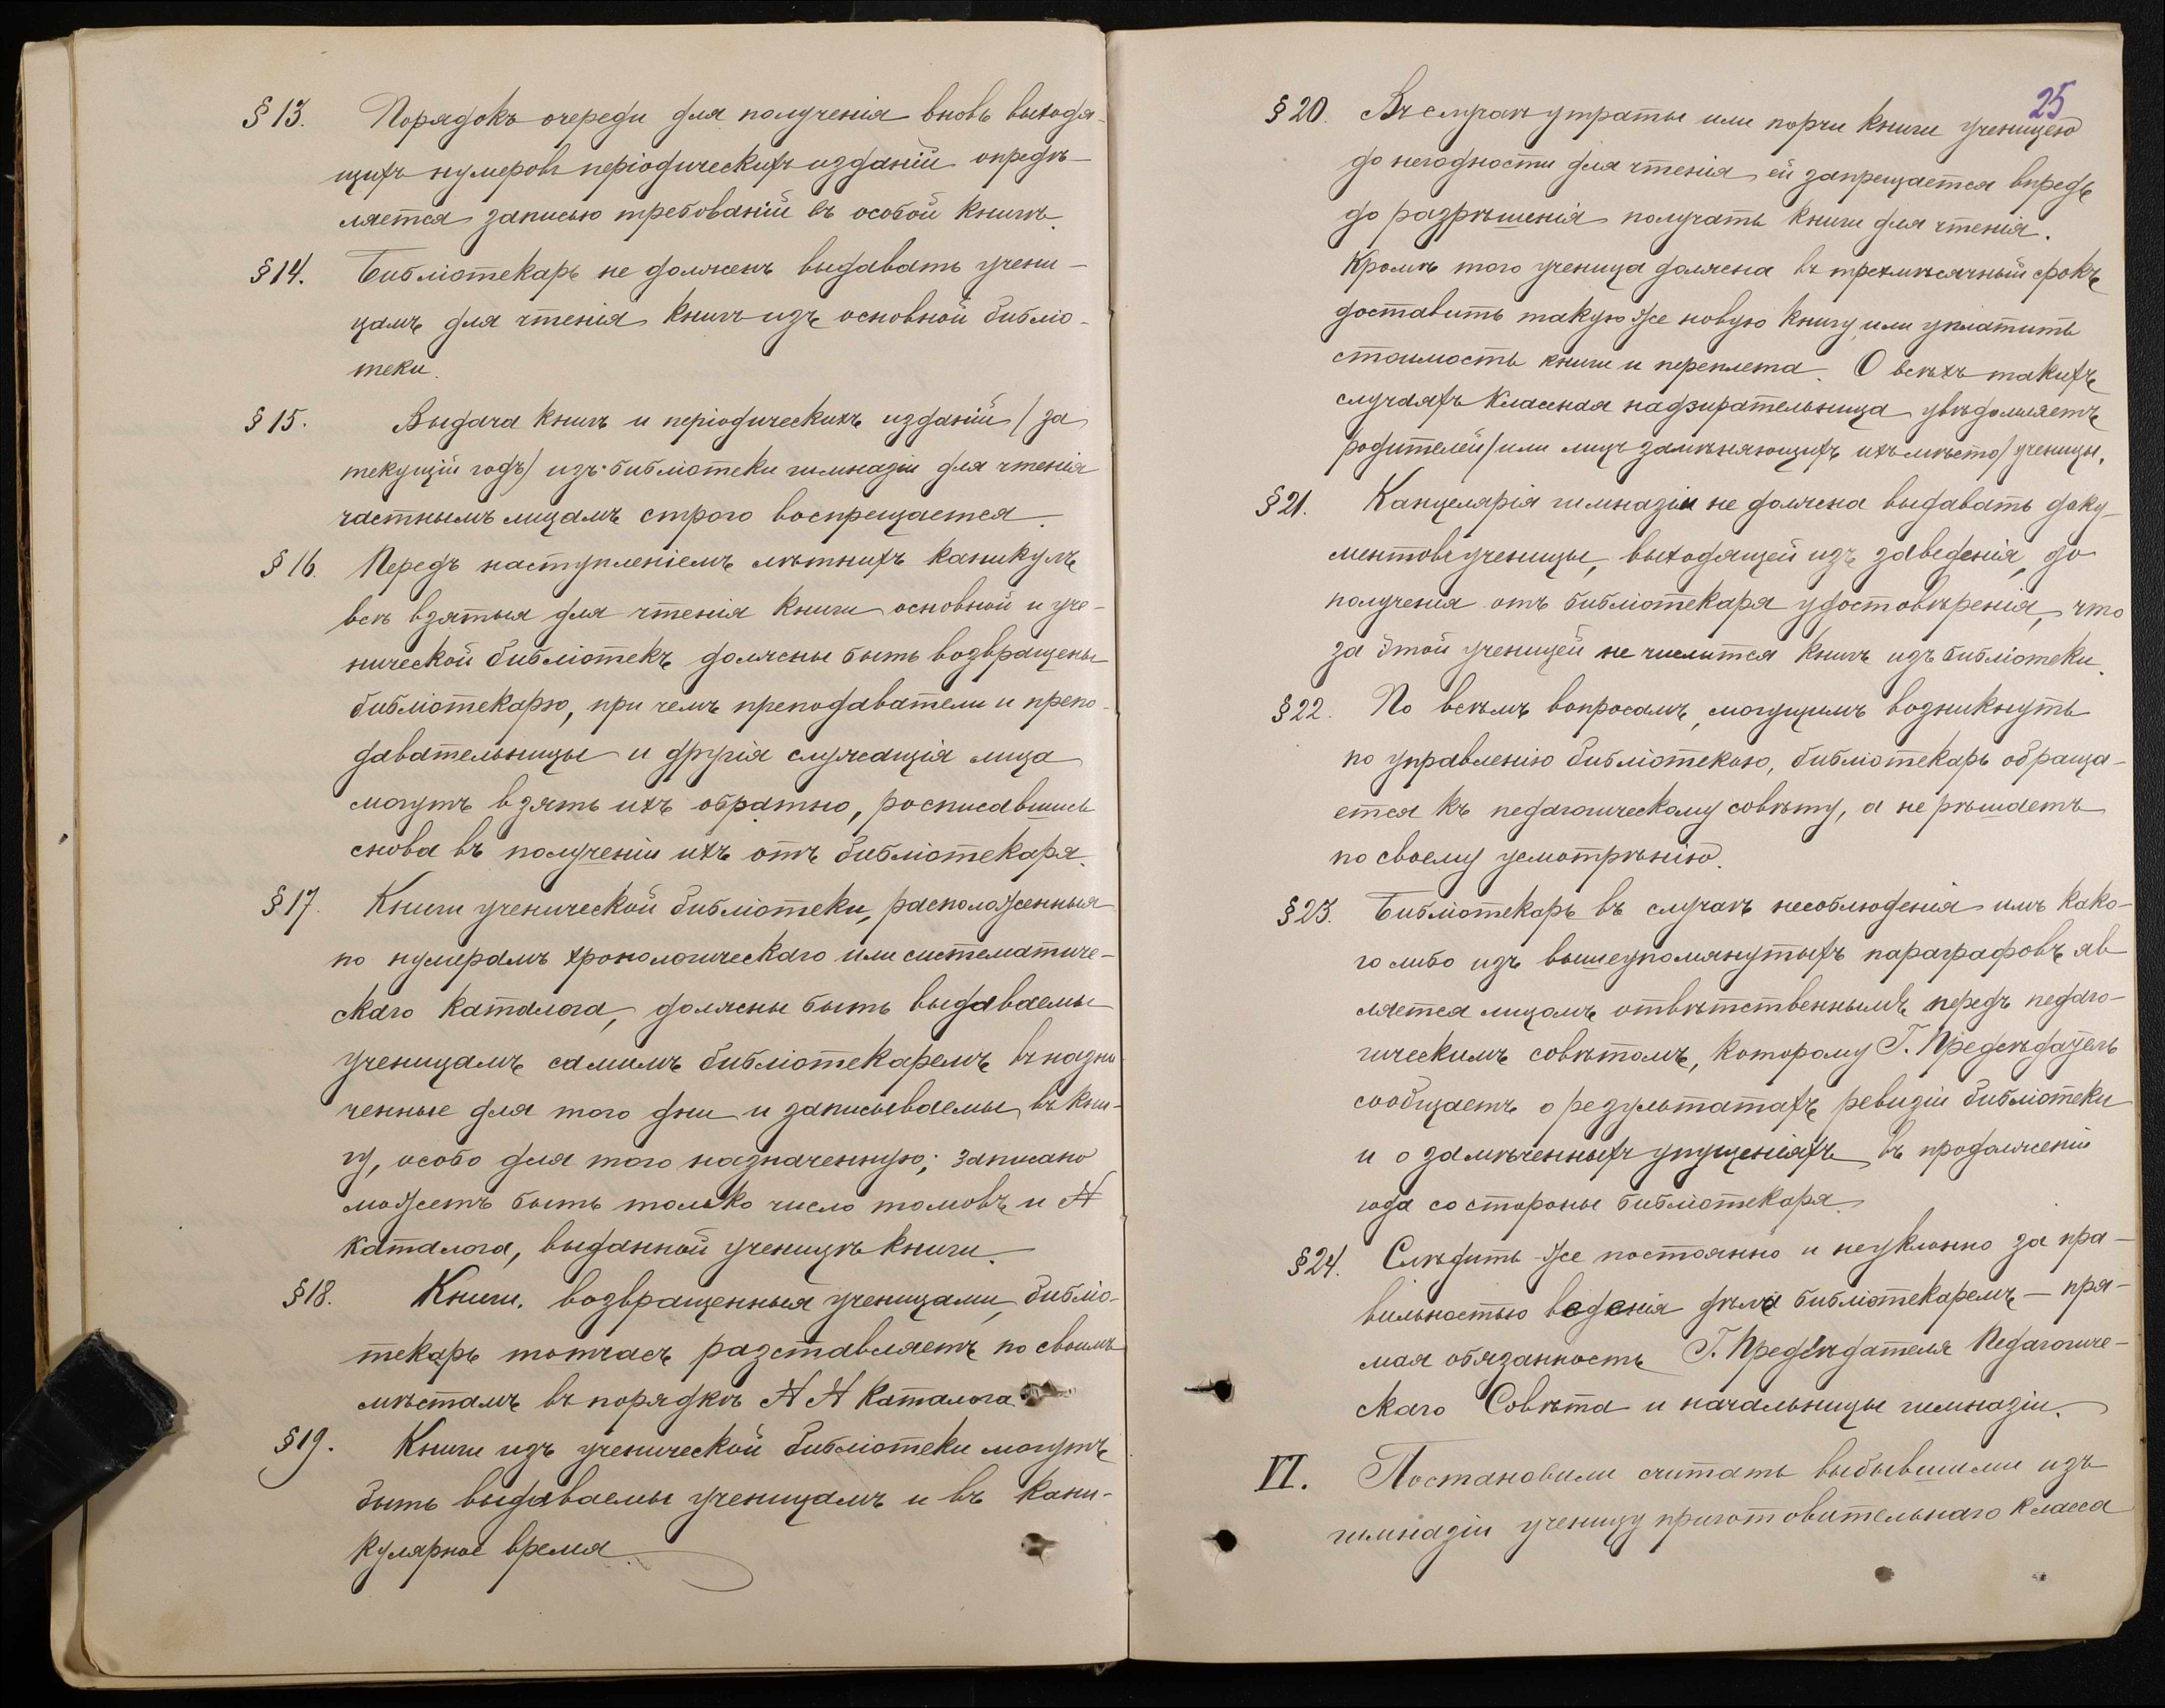 § 13. Порядокъ очереди для полученія вновь выходя-
щихъ нумеровъ періодическихъ изданій опредѣ-
ляется записью требованій въ особой книгѣ.
§ 14. Библіотекарь не долженъ выдавать учени-
цамъ для чтенія книгъ изъ основной библіо-
теки.
§ 15. Выдача книгъ и періодическихъ изданій (за
текущій годъ) изъ библіотеки гимназіи для чтенія
частнымъ лицамъ строго воспрещается.
§ 16. Передъ наступленіемъ лѣтнихъ каникулъ
всѣ взятыя для чтенія книги основной и уче-
нической библіотекъ должны быть возвращены
библіотекарю, при чемъ преподаватели и препо-
давательницы и другія служащія лица
могутъ взять ихъ обратно, росписавшись
снова въ полученіи ихъ отъ библіотекаря.
§ 17. Книги ученической библіотеки, расположенныя
по нумерамъ хронологическаго или систематиче-
скаго каталога, должны быть выдаваемы
ученицамъ самимъ библіотекаремъ въ назна-
ченные для того дни и записываемы въ кни-
гу, особо для того назначенную; записано
можетъ быть только число томовъ и №
каталога, выданной ученицѣ книги.
§ 18. Книги, возвращенныя ученицами, библіо-
текарь тотчасъ разставляетъ по своимъ
мѣстамъ въ порядкѣ № № каталога
§ 19. Книги изъ ученической библіотеки могутъ
быть выдаваемы ученицамъ и въ кани-
кулярное время.
25
§ 20. Въ случаѣ утраты или порчи книги ученицею
до негодности для чтенія ей запрещается впредь
до разрѣшенія получать книги для чтенія.
Кромѣ того ученица должна въ трехмѣсячный срокъ
доставить такую же новую книгу, или уплатить
стоимость книги и переплета. О всѣхъ такихъ
случаяхъ классная надзирательница увѣдомляетъ
родителей (или лицъ замѣняющихъ ихъ мѣсто) ученицы.
§ 21. Канцелярія гимназіи не должна выдавать доку-
ментовъ ученицы, выходящей изъ заведенія, до
полученія отъ библіотекаря удостовѣренія, что
за этой ученицей не числится книгъ изъ библіотеки.
§ 22. По всѣмъ вопросамъ, могущимъ возникнуть
по управленію библіотекою, библіотекарь обраща-
ется къ педагогическому совѣту, а не рѣшаетъ
по своему усмотрѣнію.
§ 23. Библіотекарь въ случаѣ несоблюденія имъ како-
го либо изъ вышеупомянутыхъ параграфовъ яв
ляется лицомъ отвѣтственнымъ передъ педаго-
гическимъ совѣтомъ, которому Г. Предсѣдатель
сообщаетъ о результатахъ ревизіи библіотеки
и о замѣченныхъ упущеніяхъ въ продолженіи
года со стороны библіотекаря.
§ 24. Слѣдить же постоянно и неуклонно за пра-
вильностью веденія дѣла библіотекаремъ — пря-
мая обязанность Г. Предсѣдателя Педагогиче-
скаго Совѣта и начальницы гимназіи.
VI. Постановили считать выбывшими изъ
гимназіи ученицу приготовительнаго класса